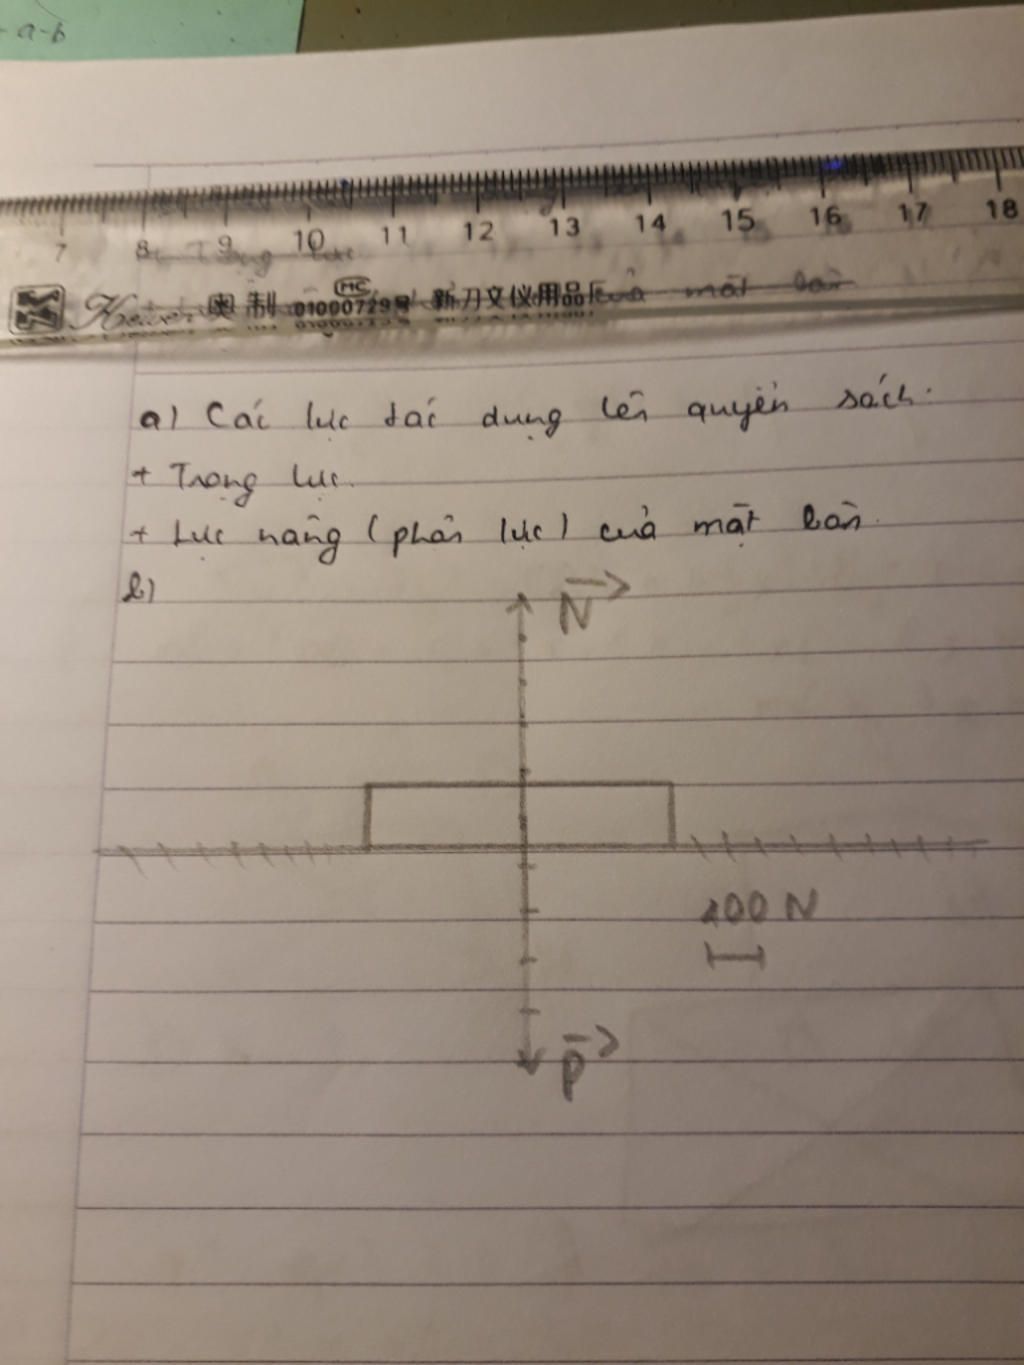 -a-b
7 8 9 10 11 12 13 14 15 16 17 18
MC
奥制 01000729号 新刀文仪用品厂 của mặt bàn
a) Các lực tác dụng lên quyển sách.
+ Trọng lực.
+ Lực nâng (phản lực) của mặt bàn.
b)
N
100 N
P